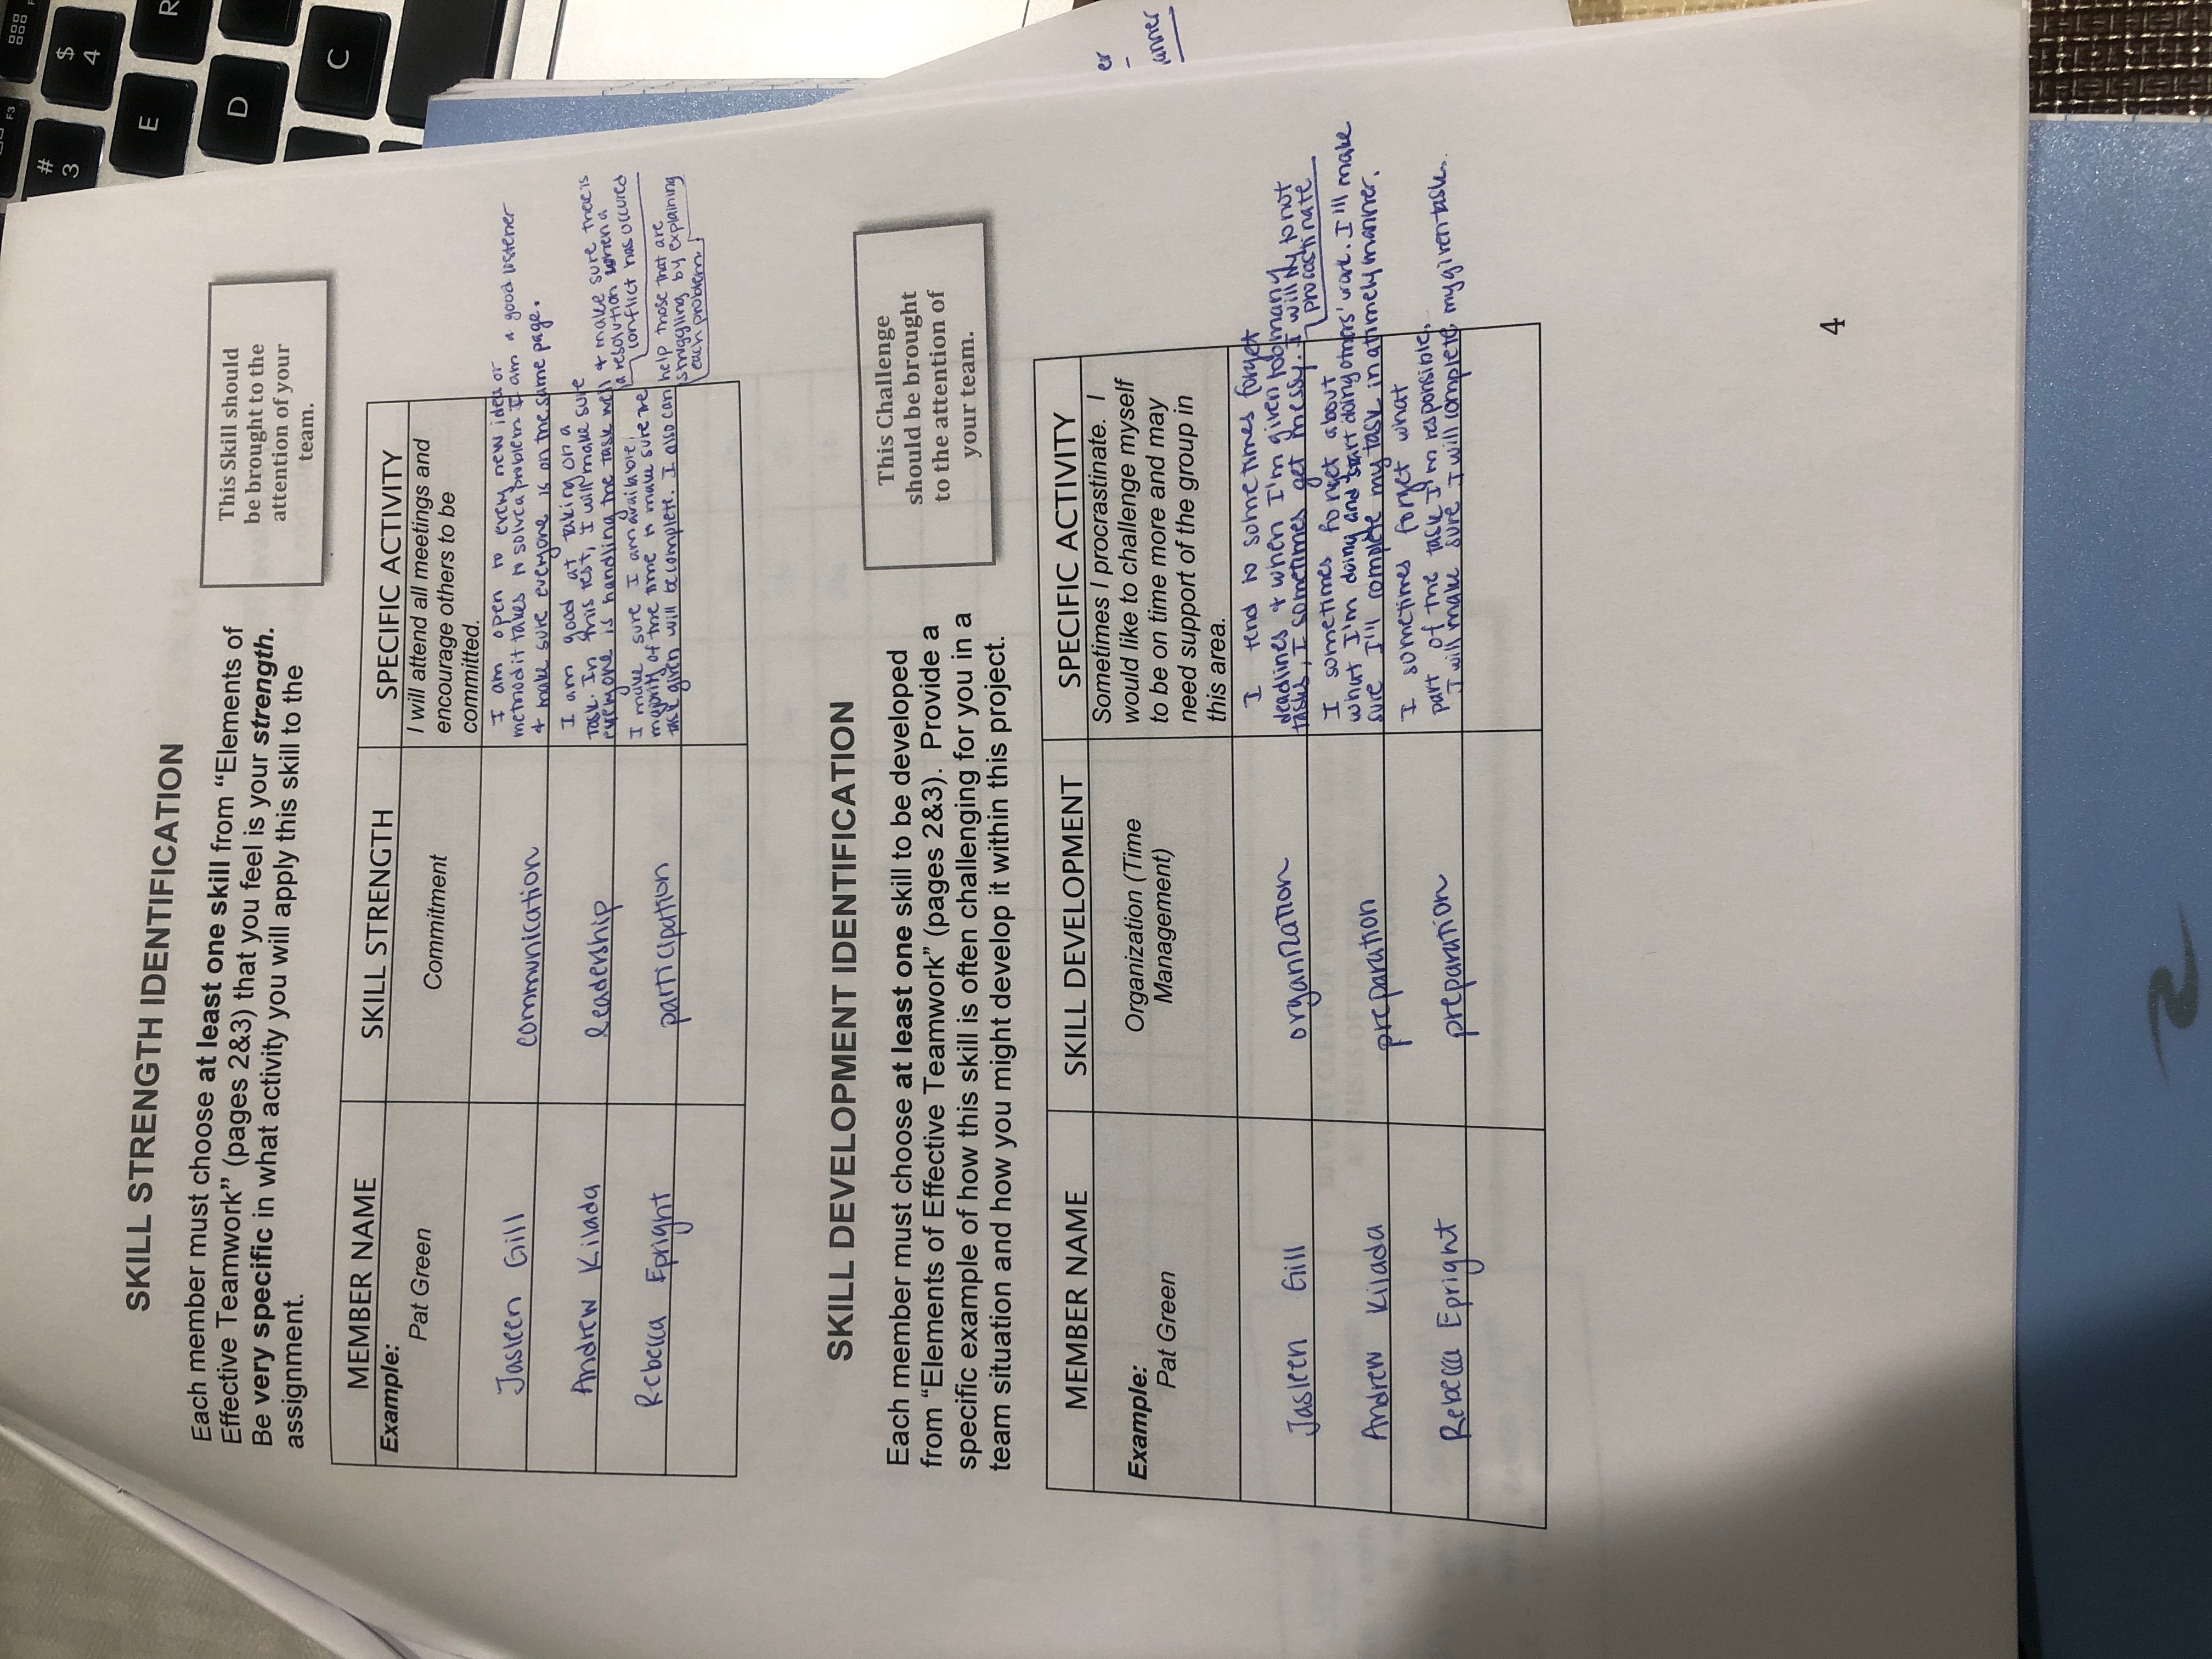 SKILL STRENGTH IDENTIFICATION
Each member must choose at least one skill from “Elements of
Effective Teamwork” (pages 2&3) that you feel is your strength.
Be very specific in what activity you will apply this skill to the
assignment.
This Skill should
be brought to the
attention of your
team.
MEMBER NAME SKILL STRENGTH SPECIFIC ACTIVITY
Example:
Pat Green
Commitment
I will attend all meetings and
encourage others to be
committed.
Jasleen Gill
communication
I am open to every new idea or
method it takes to solve a problem I am a good listener
+ make sure everyone is on the same page.
Andrew Kilada
leadership
I am good at taking on a
task. In this test, I will make sure
everyone is handling the task well + make sure there is
a resolution when a
conflict has occured
Rebecca Epright
participation
I make sure I am available
majority of the time to make sure the
task given will be complete. I also can help those that are
struggling by explaining
each problem.
SKILL DEVELOPMENT IDENTIFICATION
Each member must choose at least one skill to be developed
from “Elements of Effective Teamwork” (pages 2&3). Provide a
specific example of how this skill is often challenging for you in a
team situation and how you might develop it within this project.
This Challenge
should be brought
to the attention of
your team.
MEMBER NAME SKILL DEVELOPMENT SPECIFIC ACTIVITY
Example:
Pat Green
Organization (Time
Management)
Sometimes I procrastinate. I
would like to challenge myself
to be on time more and may
need support of the group in
this area.
Jasleen Gill
organization
I tend to sometimes forget
deadlines + when I'm given too many
tasks, I sometimes get messy. I will try to not
procastinate
Andrew Kilada
preparation
I sometimes forget about
what I'm doing and start doing others' work. I'll make
sure I'll complete my task in a timely manner.
Rebecca Epright
preparation
I sometimes forget what
part of the task I'm responsible.
I will make sure I will complete my given task.
4
# 3
$ 4
E
R
D
C
F3
er
anner